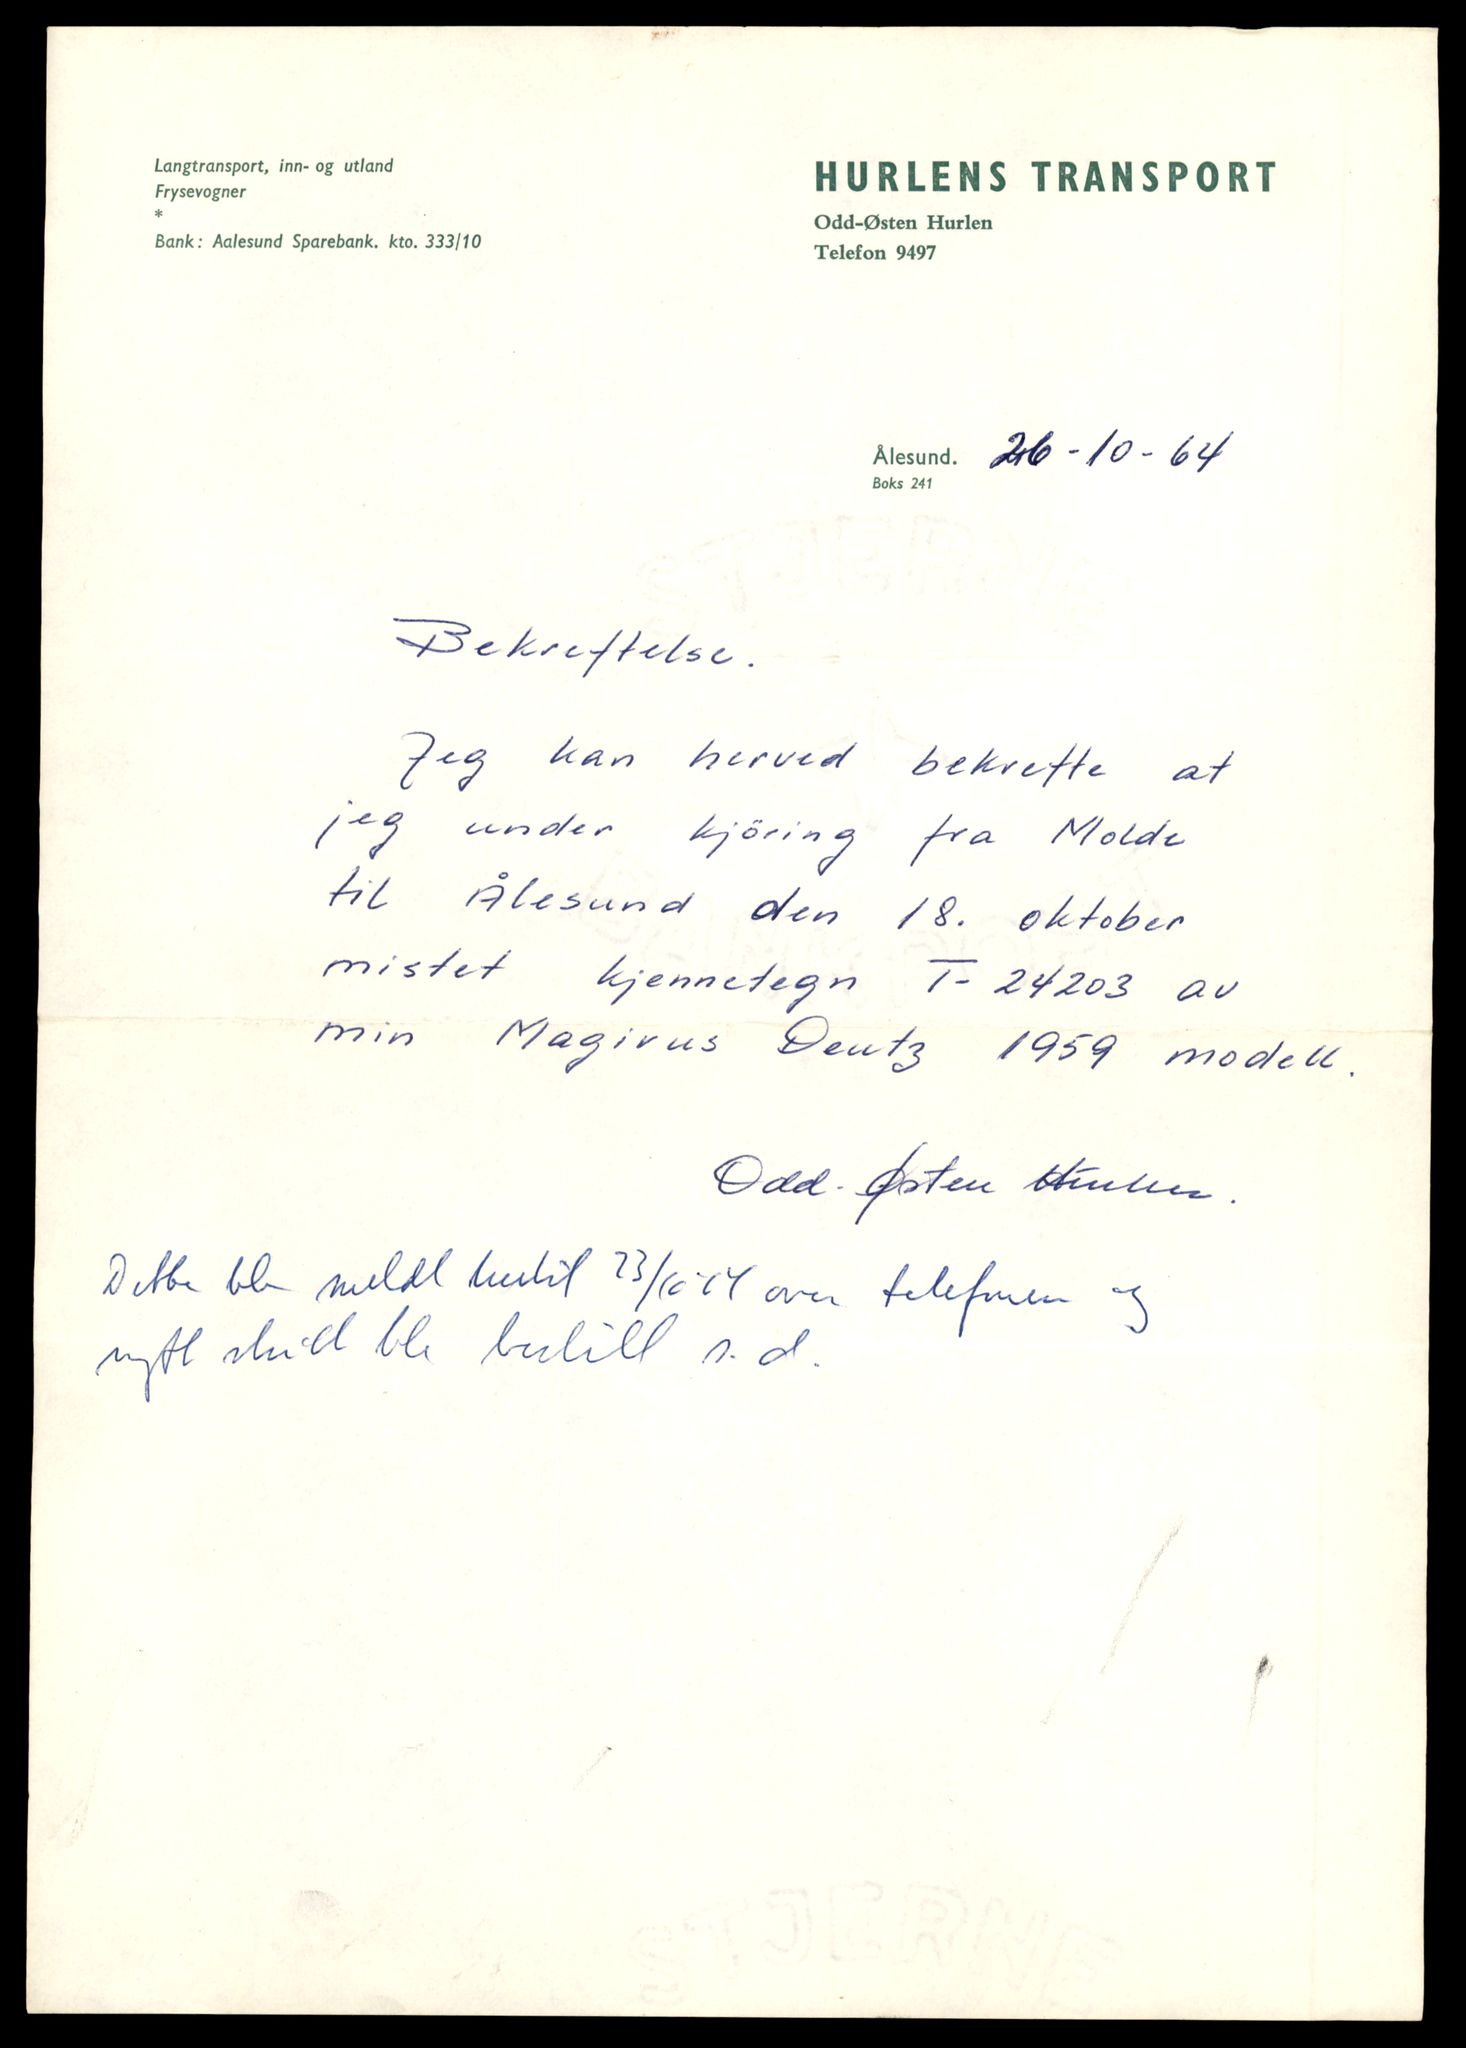 Langtransport, inn- og utland
Frysevogner
*
Bank: Aalesund Sparebank. kto. 333/10
HURLENS TRANSPORT
Odd-Østen Hurlen
Telefon 9497
Ålesund. 26-10-64
Boks 241
Bekreftelse.
Jeg kan herved bekrefte at
jeg under kjöring fra Molde
til Ålesund den 18. oktober
mistet kjennetegn T-24203 av
min Magirus Deutz 1959 modell.
Odd-Østen Hurlen.
Dette ble meldt hertil 23/10-64 over telefonen og
nytt skilt ble bestilt s.d.